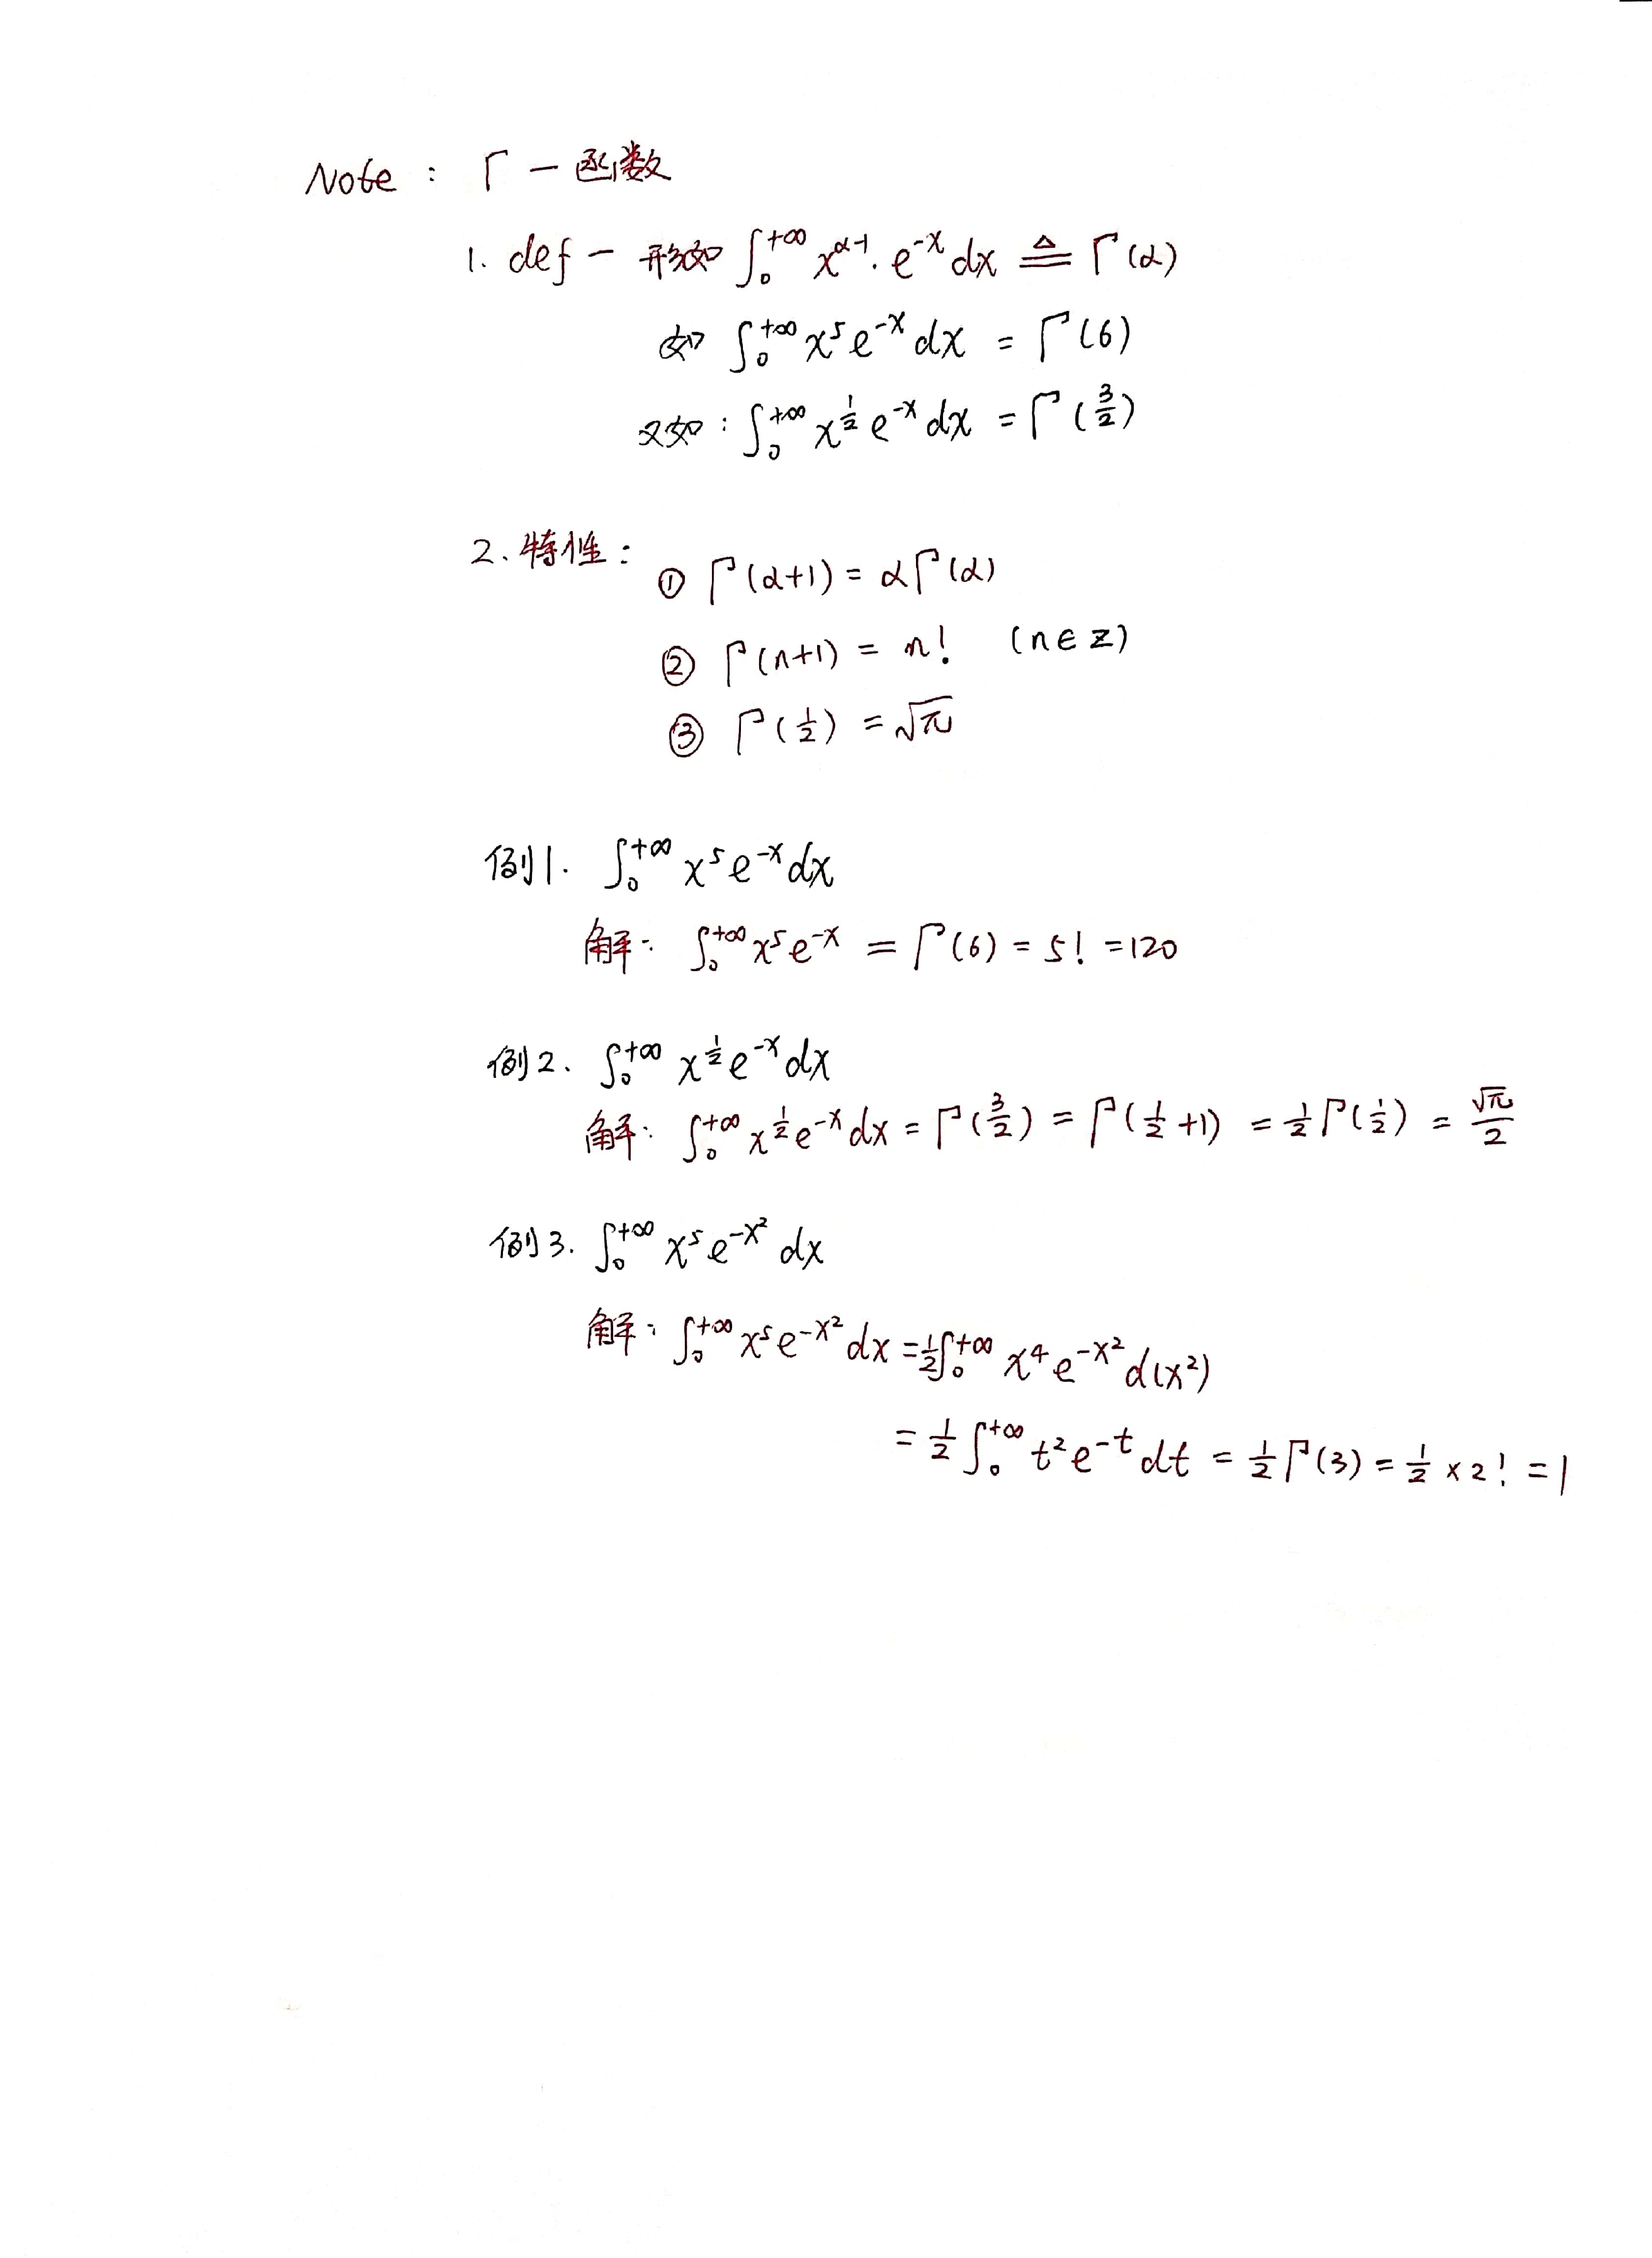 Note : Γ — 函数
1. def — 形如 ∫₀^{+∞} x^{α-1} · e^{-x} dx ≜ Γ(α)
如 ∫₀^{+∞} x^5 e^{-x} dx = Γ(6)
又如 : ∫₀^{+∞} x^{1/2} e^{-x} dx = Γ(3/2)
2. 特性 :
① Γ(α+1) = αΓ(α)
② Γ(n+1) = n! (n∈Z)
③ Γ(1/2) = √π
例1. ∫₀^{+∞} x^5 e^{-x} dx
解: ∫₀^{+∞} x^5 e^{-x} = Γ(6) = 5! = 120
例2. ∫₀^{+∞} x^{1/2} e^{-x} dx
解: ∫₀^{+∞} x^{1/2} e^{-x} dx = Γ(3/2) = Γ(1/2 +1) = 1/2 Γ(1/2) = √π/2
例3. ∫₀^{+∞} x^5 e^{-x²} dx
解: ∫₀^{+∞} x^5 e^{-x²} dx = 1/2 ∫₀^{+∞} x^4 e^{-x²} d(x²)
= 1/2 ∫₀^{+∞} t² e^{-t} dt = 1/2 Γ(3) = 1/2 × 2! = 1